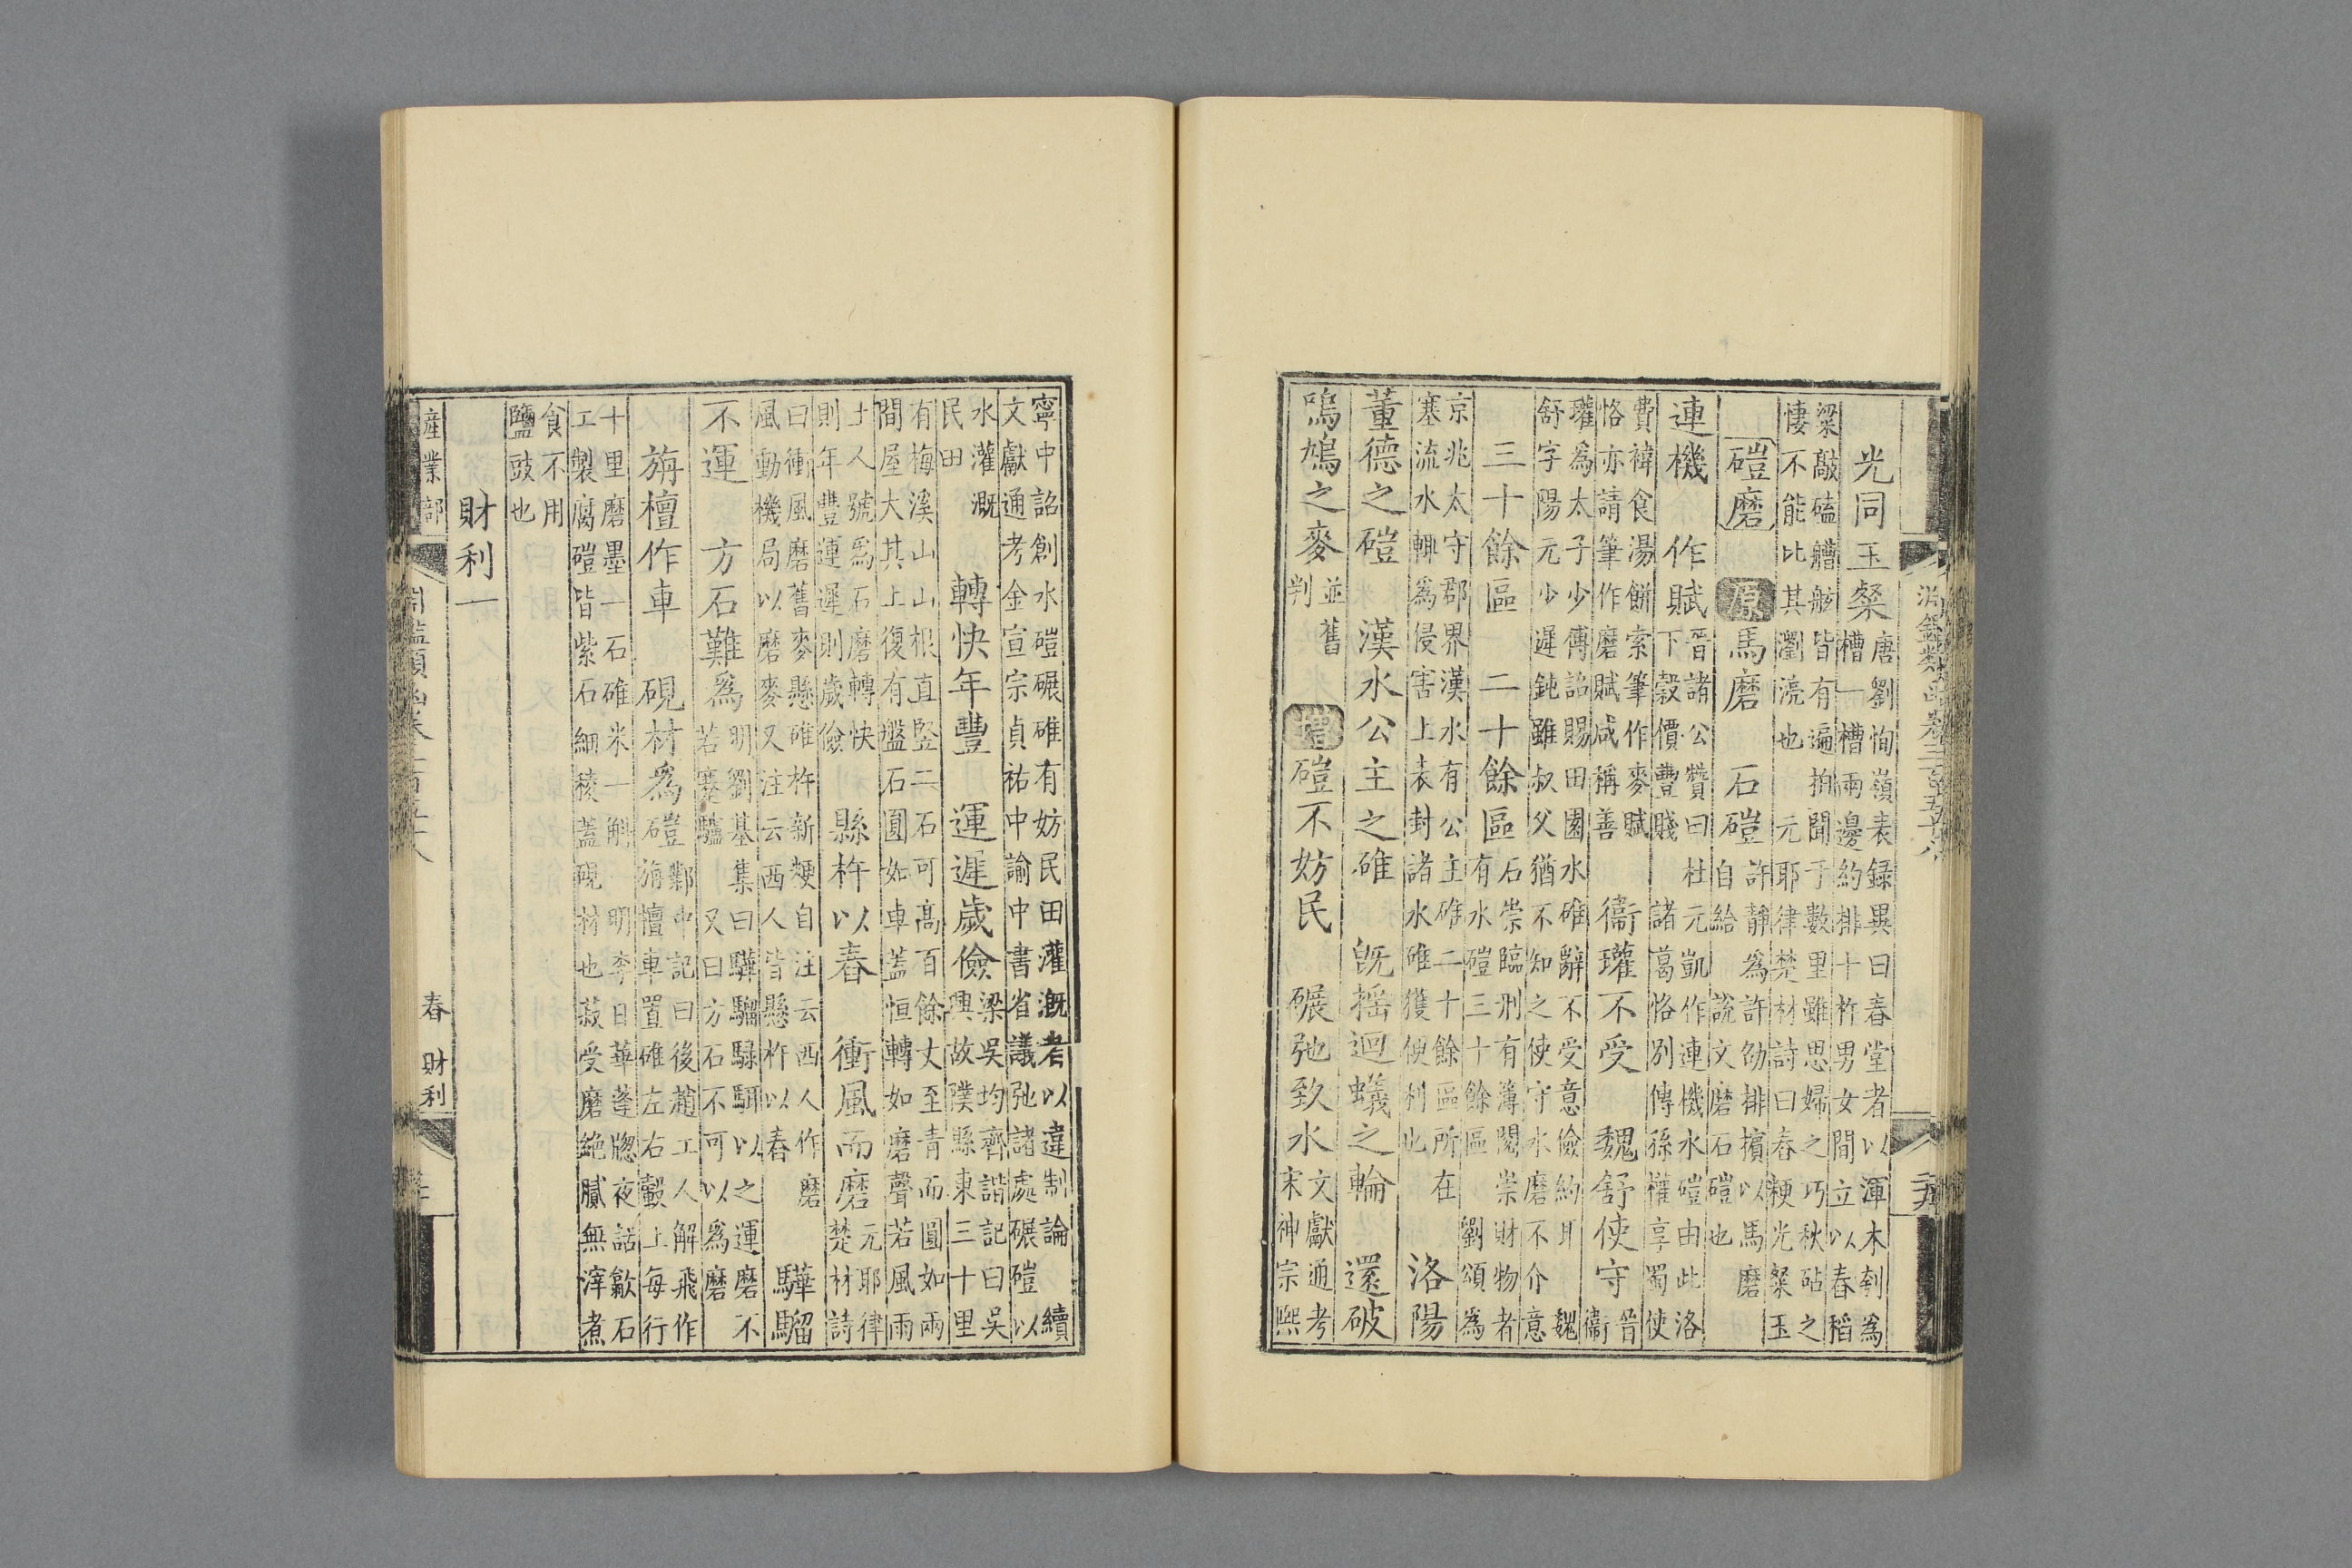 淵鑑類函卷三百五十八
光同玉粲
唐劉恂嶺表録異曰舂堂者以渾木刳為
槽一槽兩邊約排十杵男女間立以舂稻
粱敲磕艚舷皆有遍拍聞于數里雖思婦之巧秋砧之
悽不能比其瀏浣也 元耶律楚材詩曰舂粳光粲玉
磑磨 原 馬磨 石磑
許靜為許劭排擯以馬磨
自給 說文磨石磑也
連機 作賦
晉諸公贊曰杜元凱作連機水磑由此洛
下穀價豐賤 諸葛恪別傳孫權享蜀使
費褘食湯餅索筆作麥賦
恪亦請筆作磨賦咸稱善
衞瓘不受 魏舒使守
晉
衞
瓘為太子少傅詔賜田園水碓辭不受意儉約耳 魏
舒字陽元少遲鈍雖叔父猶不知之使守水磨不介意
三十餘區 二十餘區
石崇臨刑有簿閱崇財物者
有水磑三十餘區 劉頌為
京兆太守郡界漢水有公主碓二十餘區所在
塞流水輙為侵害上表封諸水碓獲便利也
洛陽
董德之磑 漢水公主之碓 旣揺迴蟻之輪 還破
鳴鳩之麥
並舊
判
增 磑不妨民 碾弛致水
文獻通考
末神宗熙
寧中詔創水磑碾碓有妨民田灌溉者以違制論 續
文獻通考金宣宗貞祐中諭中書省議弛諸處碾磑以
水灌溉
民田
轉快年豐 運遲歲儉
梁吳均齊諧記曰吳
興故鄣縣東三十里
有梅溪山山根直竪二石可高百餘丈至青而圓如兩
間屋大其上復有盤石圓如車蓋恒轉如磨聲若風雨
土人號為石磨轉快
則年豐運遲則歲儉
縣杵以舂 衝風而磨
元耶律
楚材詩
曰衝風磨舊麥懸碓杵新粳自注云西人作磨
風動機局以磨麥又注云西人皆懸杵以舂
驊騮
不運 方石難為
明劉基集曰驊騮騄駬以之運磨不
若蹇驢 又曰方石不可以為磨
旃檀作車 硯材為磑
鄴中記曰後趙工人解飛作
旃檀車置碓左右轂上每行
十里磨墨一石碓米一斛 明李日華蓬牕夜話歙石
工製腐磑皆紫石細稜蓋硯材也菽受磨絶膩無滓煮
食不用
鹽豉也
財利一
産業部
舂 財利